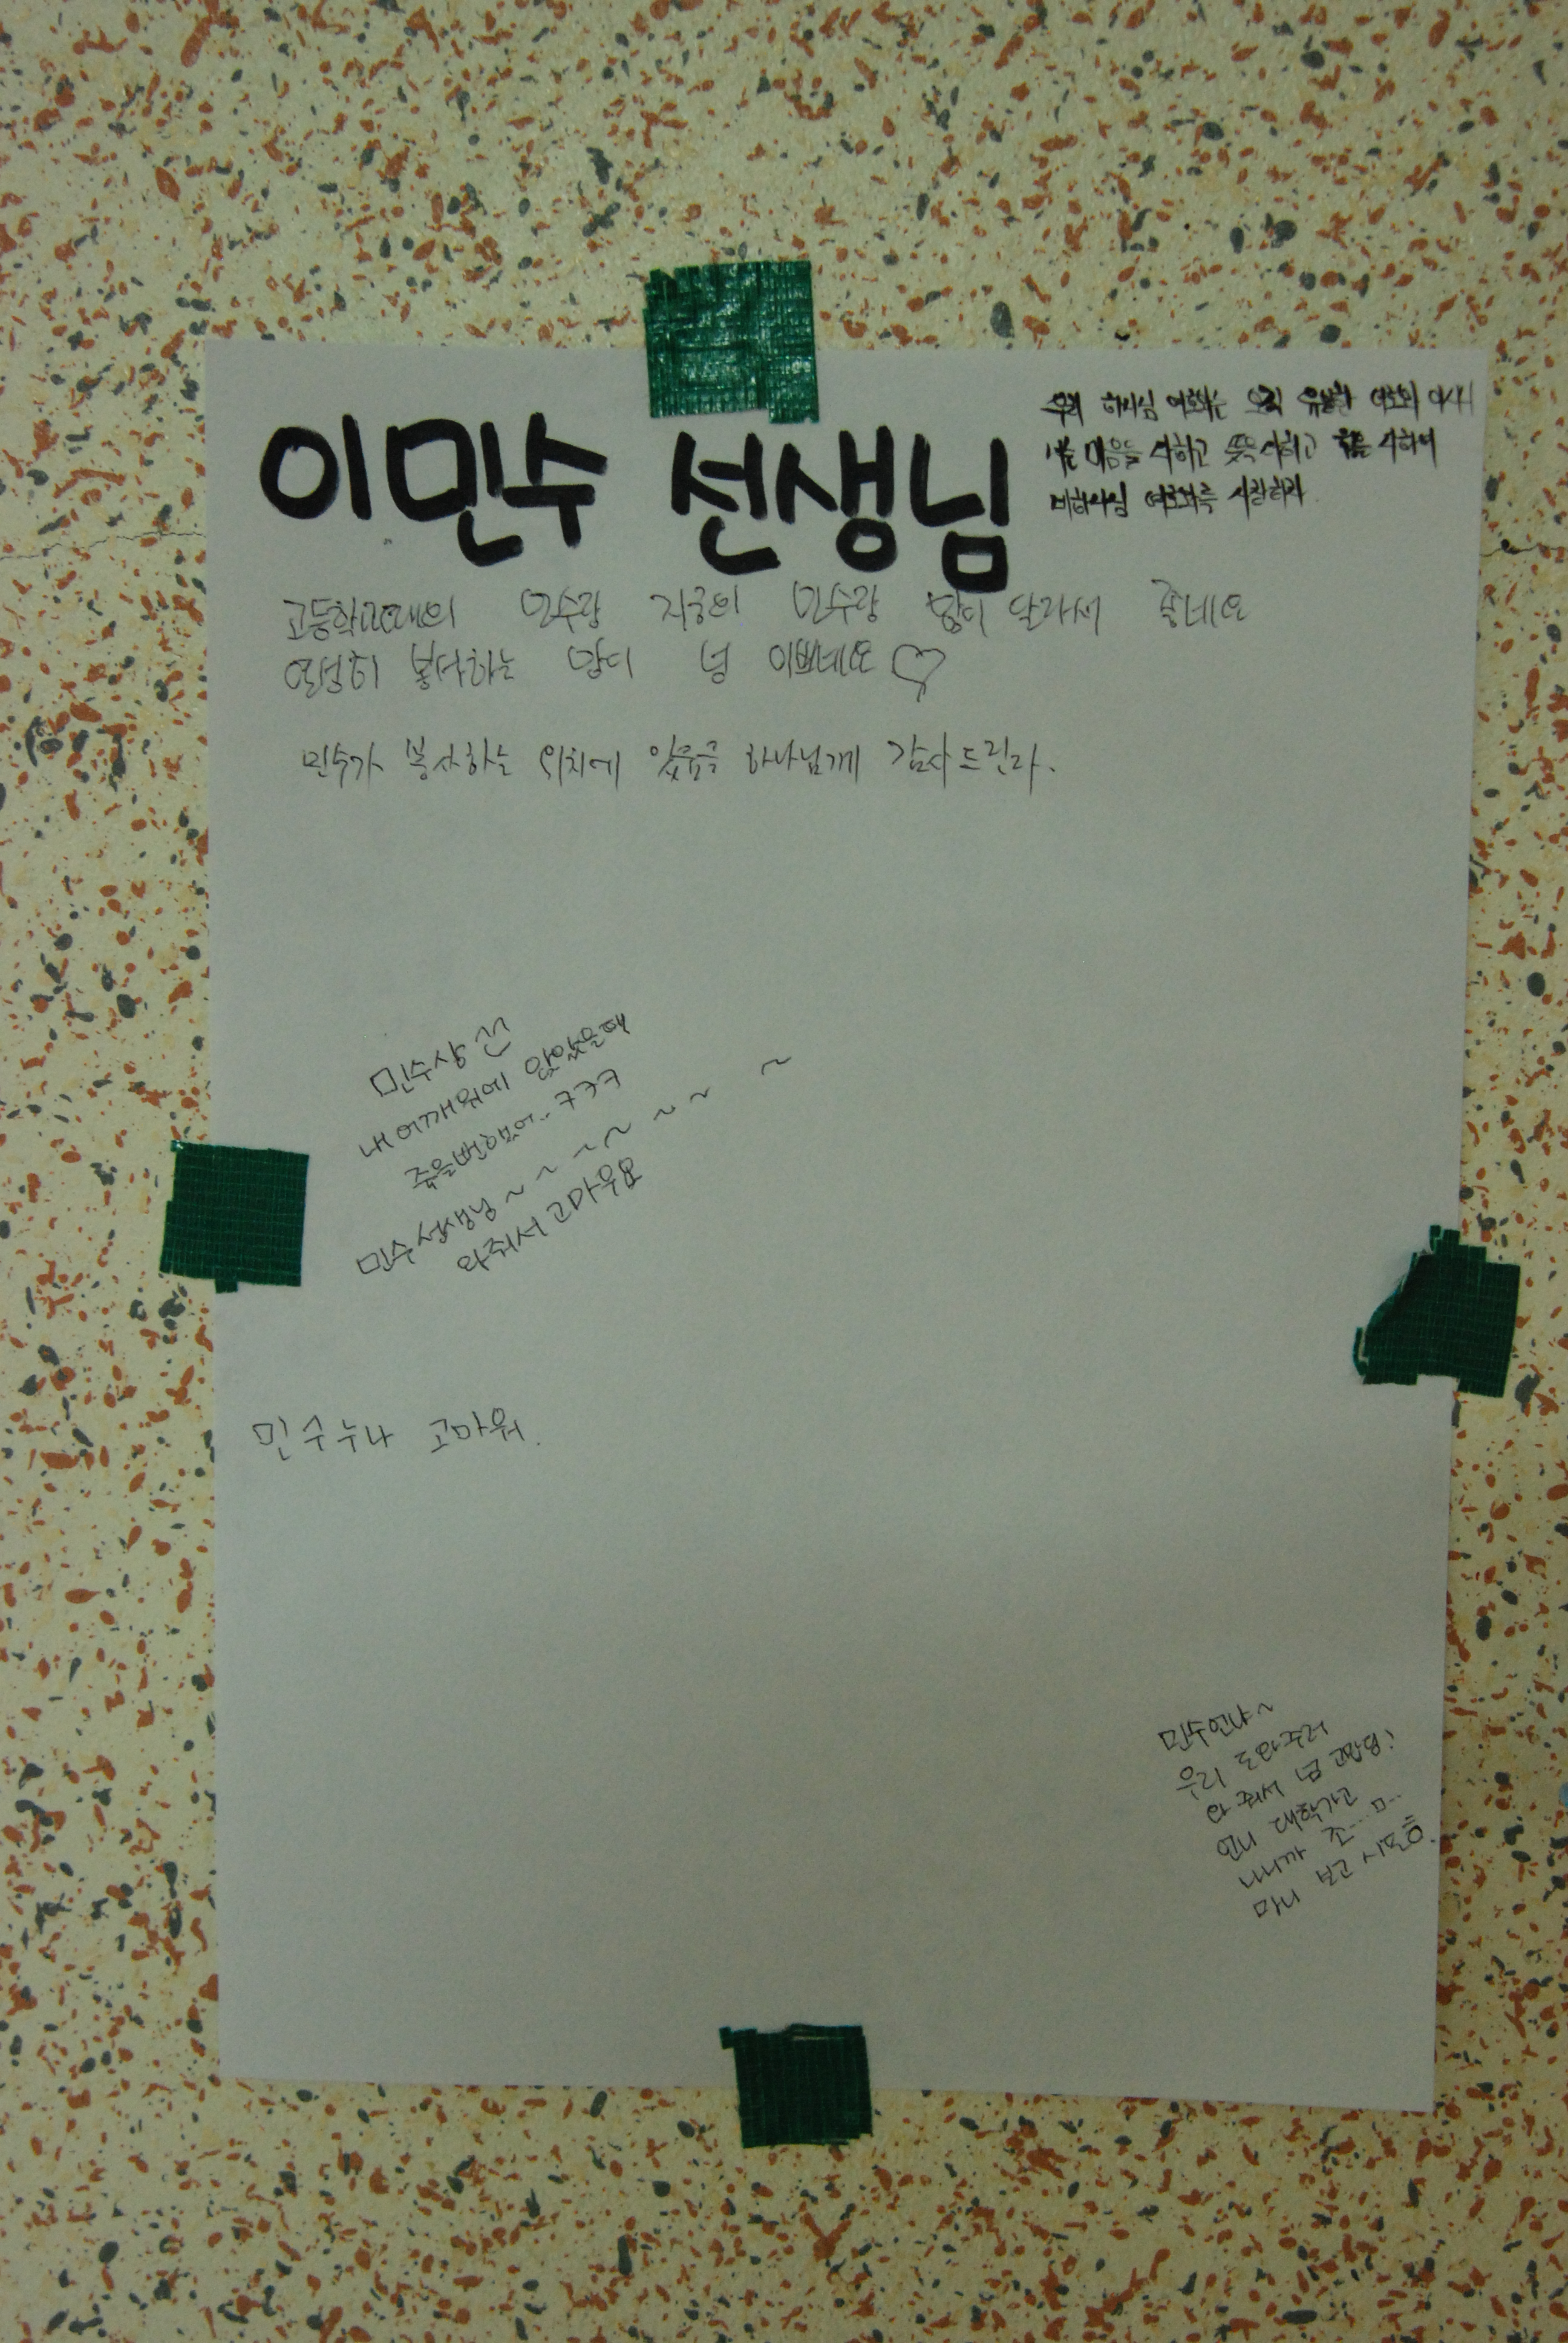 이민수 선생님
우리 하나님 여호와는 오직 유일한 여호와 이시니
너는 마음을 다하고 뜻을 다하고 힘을 다하여
네 하나님 여호와를 사랑하라
고등학교때의 민수랑 지금의 민수랑 많이 달라서 좋네요
열심히 봉사하는 맘이 넘 이쁘네요 ♡
민수가 봉사하는 위치에 있음을 하나님께 감사드린다.
민수상
내 어깨위에 앉았을때
죽을뻔했어.. ㅋㅋㅋ
민수선생님 ~ ~ ~ ~ ~ ~ ~
와줘서 고마워요
민수누나 고마워.
민수언냐~
우리 도와주러
와 줘서 넘 고맙당!
언니 대학가고
나니까 조....ㅁ...
마니 보고 시포흥.